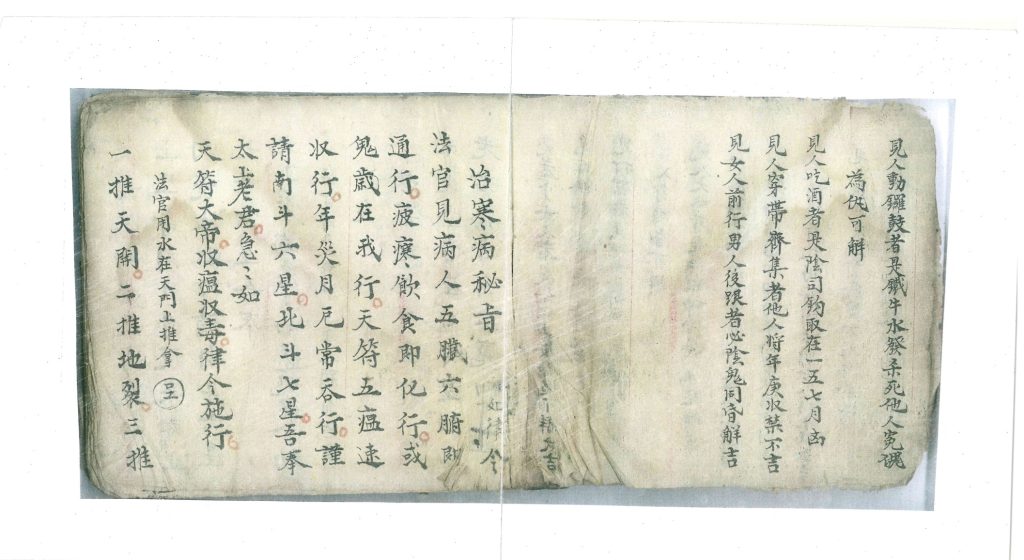 見人動鑼鼓者是鐵牛水發杀死他人冤魂
為仇可解
見人吃酒者是陰司鈎取在一五七月凶
見人穿帶齊集者他人将年庚収禁不吉
見女人前行男人後跟者必陰鬼同昏解吉
如律令
大吉
治寒病秘旨
法官見病人五臟六腑即
通行疲瘝飲食即化行或
鬼歲在我行天符五瘟速
収行年災月厄常吞行謹
請南斗六星北斗七星吾奉
太上老君急〻如
天符大帝収瘟収毒律令施行
法官用水在天門上推拿
一推天開二推地裂三推